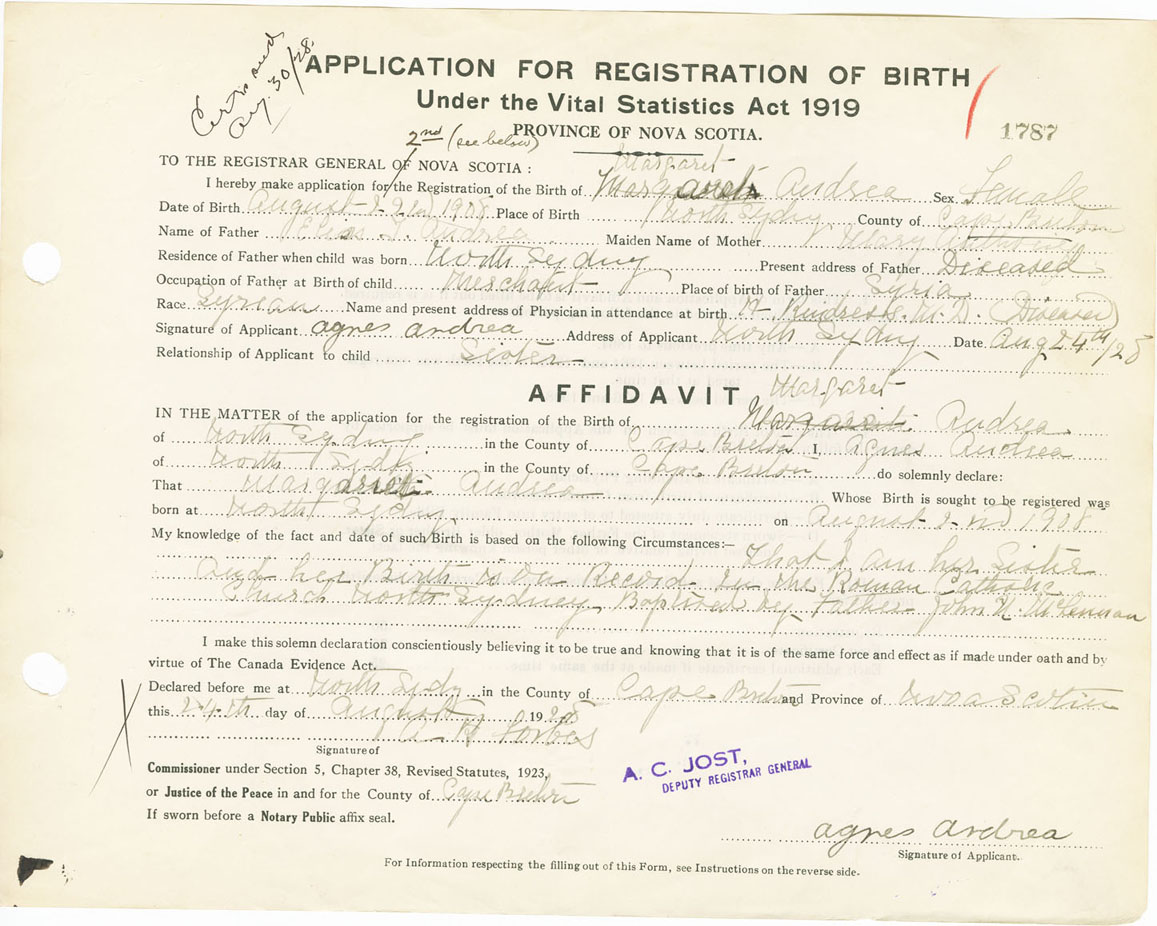 Aug. 30/28
APPLICATION FOR REGISTRATION OF BIRTH
Under the Vital Statistics Act 1919
PROVINCE OF NOVA SCOTIA.
1787
2nd (see below)
TO THE REGISTRAR GENERAL OF NOVA SCOTIA :
Margaret
I hereby make application for the Registration of the Birth of Andrea Sex Female
Date of Birth August 22nd 1908 Place of Birth North Sydny County of Cape Breton
Name of Father Andrea Maiden Name of Mother Mary
Residence of Father when child was born North Sydny Present address of Father Diseased
Occupation of Father at Birth of child Merchant Place of birth of Father Syria
Race Syrian Name and present address of Physician in attendance at birth M.D. (Diseased)
Signature of Applicant agnes andrea Address of Applicant North Sydny Date Aug 24th/28
Relationship of Applicant to child Sister
AFFIDAVIT
Margaret
IN THE MATTER of the application for the registration of the Birth of Andrea
of North Sydny in the County of Cape Breton I, Agnes Andrea
of North Sydny in the County of Cape Breton do solemnly declare:
That Andrea Whose Birth is sought to be registered was
born at North Sydny on August 2nd 1908
My knowledge of the fact and date of such Birth is based on the following Circumstances:— That I am her Sister
And her Birth is on Record in the Roman Catholic
Church North Sydney Baptised by Father John
I make this solemn declaration conscientiously believing it to be true and knowing that it is of the same force and effect as if made under oath and by
virtue of The Canada Evidence Act.
Declared before me at North Sydy in the County of Cape Breton and Province of Nova Scotia
this 24th day of August 1928
Forbes
Signature of
Commissioner under Section 5, Chapter 38, Revised Statutes, 1923,
or Justice of the Peace in and for the County of Cape Breton
If sworn before a Notary Public affix seal.
A. C. JOST,
DEPUTY REGISTRAR GENERAL
agnes andrea
Signature of Applicant.
For Information respecting the filling out of this Form, see Instructions on the reverse side.